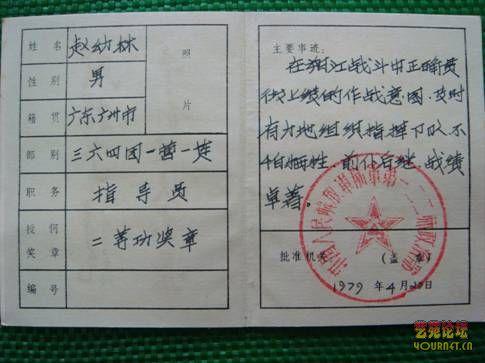 姓名 赵幼林
照片
性别 男
籍贯 广东广州市
部别 三六四团一营一连
职务 指导员
授何奖章 二等功奖章
编号
主要事迹：
在湘江战斗中正确贯
彻上级的作战意图，及时
有力地组织指挥下队不
怕牺牲，前仆后继，战绩
卓著。
批准机关 （盖章）
1979年4月20日
艺苑论坛
4OURNET.CN